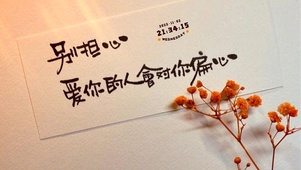 别担心
2022-11-02
21:34:15
WEDNESDAY
爱你的人會对你偏心